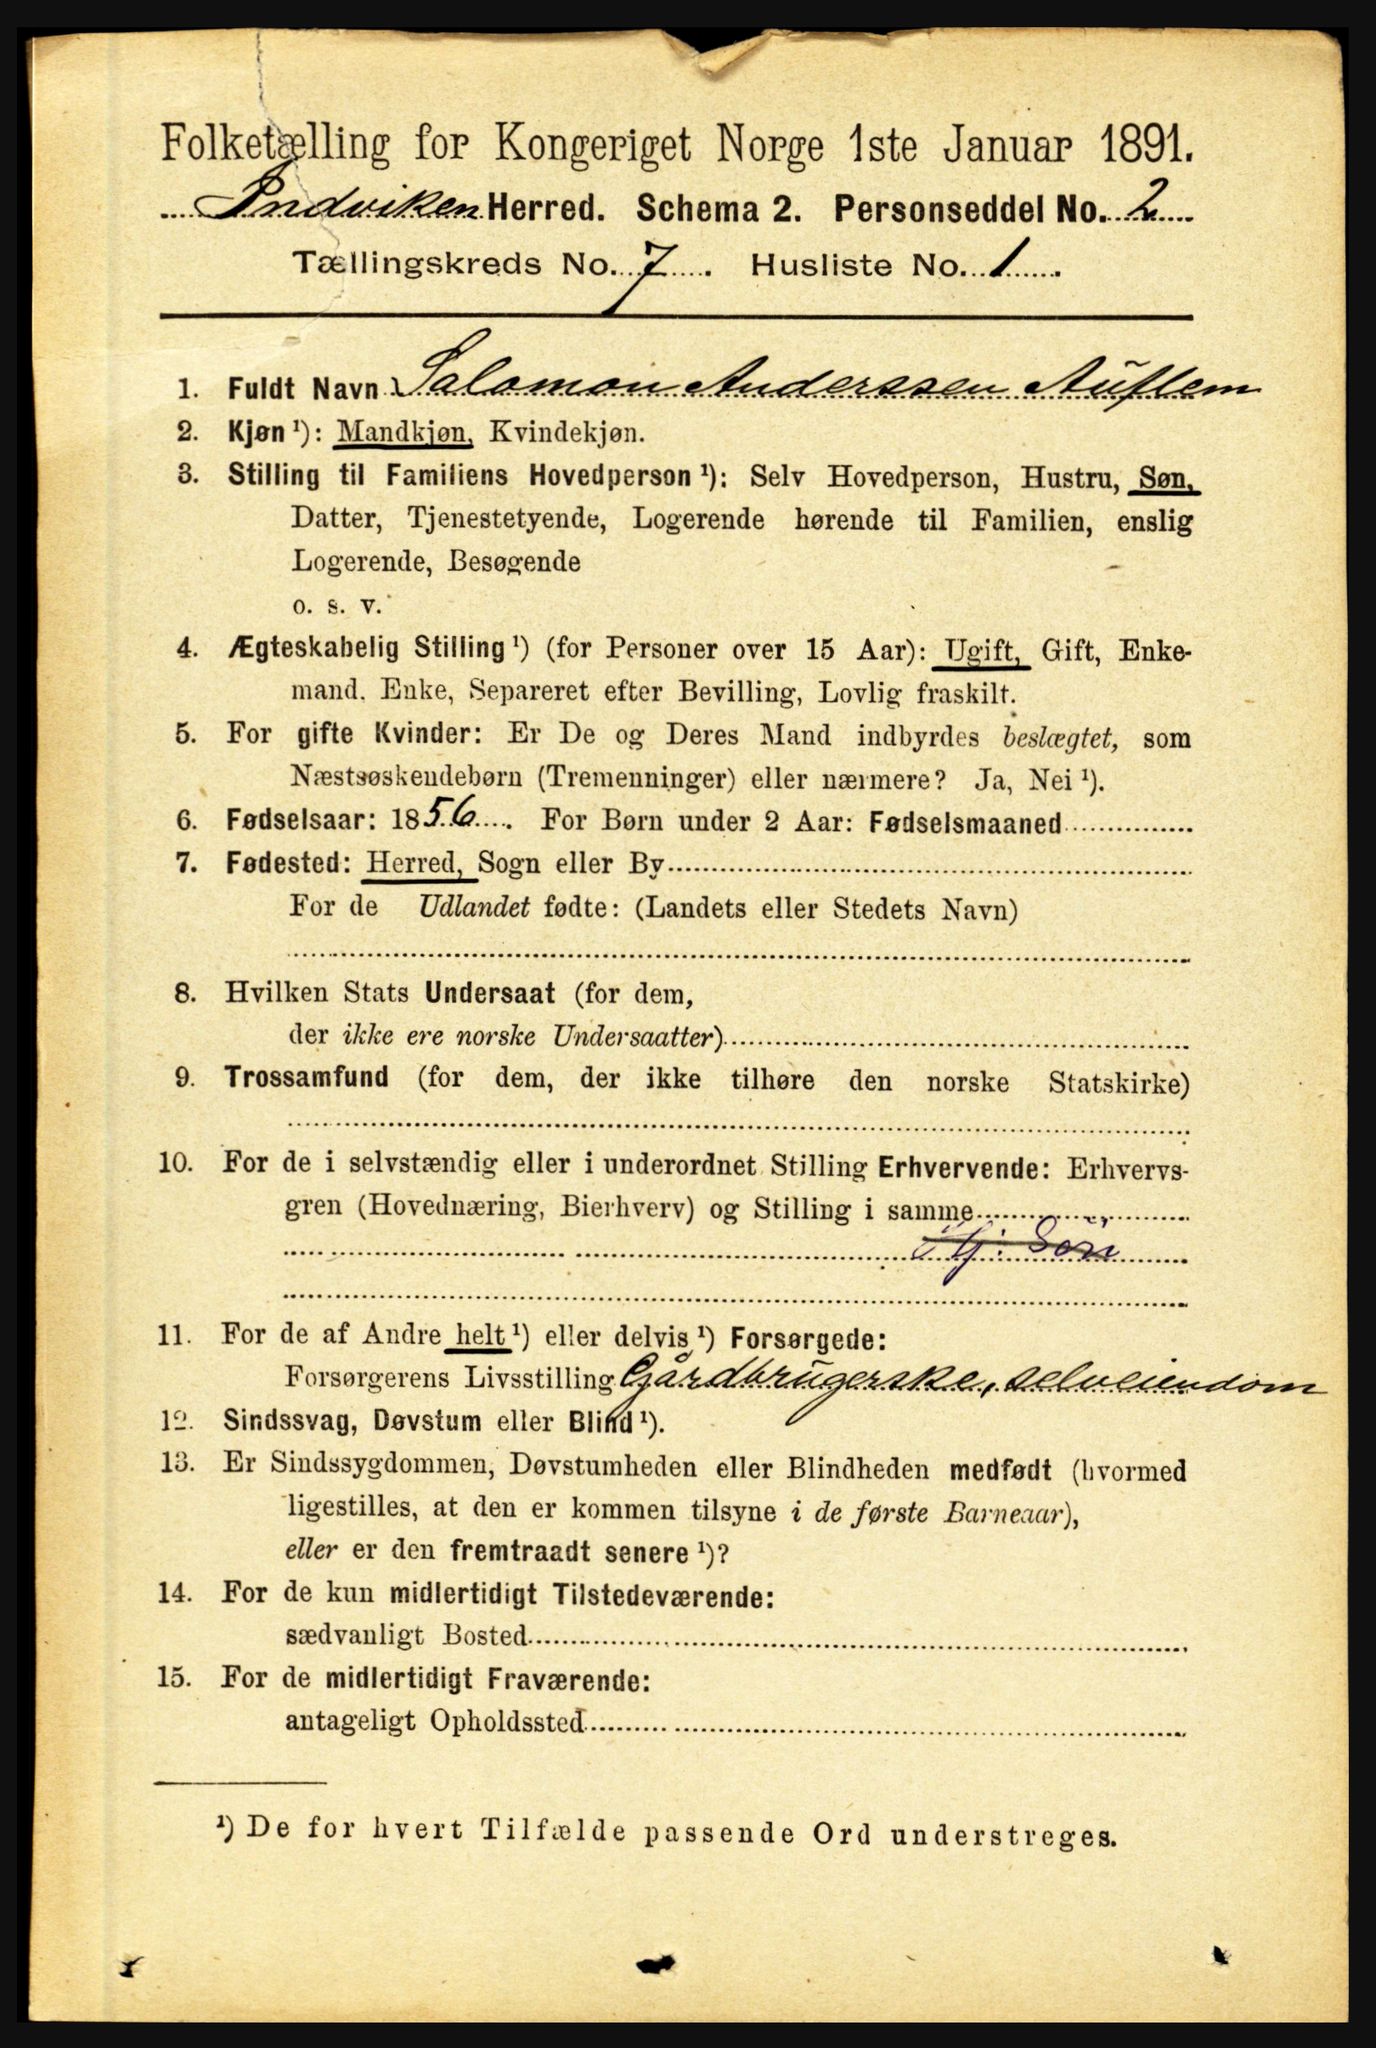 Folketælling for Kongeriget Norge 1ste Januar 1891.
Indviken Herred. Schema 2. Personseddel No. 2
Tællingskreds No. 7. Husliste No. 1
1. Fuldt Navn Salomon Anderssen Auflem
2. Kjøn ¹): Mandkjøn, Kvindekjøn.
3. Stilling til Familiens Hovedperson ¹): Selv Hovedperson, Hustru, Søn,
Datter, Tjenestetyende, Logerende hørende til Familien, enslig
Logerende, Besøgende
o. s. v.
4. Ægteskabelig Stilling ¹) (for Personer over 15 Aar): Ugift, Gift, Enke-
mand, Enke, Separeret efter Bevilling, Lovlig fraskilt.
5. For gifte Kvinder: Er De og Deres Mand indbyrdes beslægtet, som
Næstsøskendebørn (Tremenninger) eller nærmere? Ja, Nei ¹).
6. Fødselsaar: 1856. For Børn under 2 Aar: Fødselsmaaned
7. Fødested: Herred, Sogn eller By
For de Udlandet fødte: (Landets eller Stedets Navn)
8. Hvilken Stats Undersaat (for dem,
der ikke ere norske Undersaatter)
9. Trossamfund (for dem, der ikke tilhøre den norske Statskirke)
10. For de i selvstændig eller i underordnet Stilling Erhvervende: Erhvervs-
gren (Hovednæring, Bierhverv) og Stilling i samme
11. For de af Andre helt ¹) eller delvis ¹) Forsørgede:
Forsørgerens Livsstilling Gårdbrugerske, selveiendom
12. Sindssvag, Døvstum eller Blind ¹).
13. Er Sindssygdommen, Døvstumheden eller Blindheden medfødt (hvormed
ligestilles, at den er kommen tilsyne i de første Barneaar),
eller er den fremtraadt senere ¹)?
14. For de kun midlertidigt Tilstedeværende:
sædvanligt Bosted
15. For de midlertidigt Fraværende:
antageligt Opholdssted
¹) De for hvert Tilfælde passende Ord understreges.